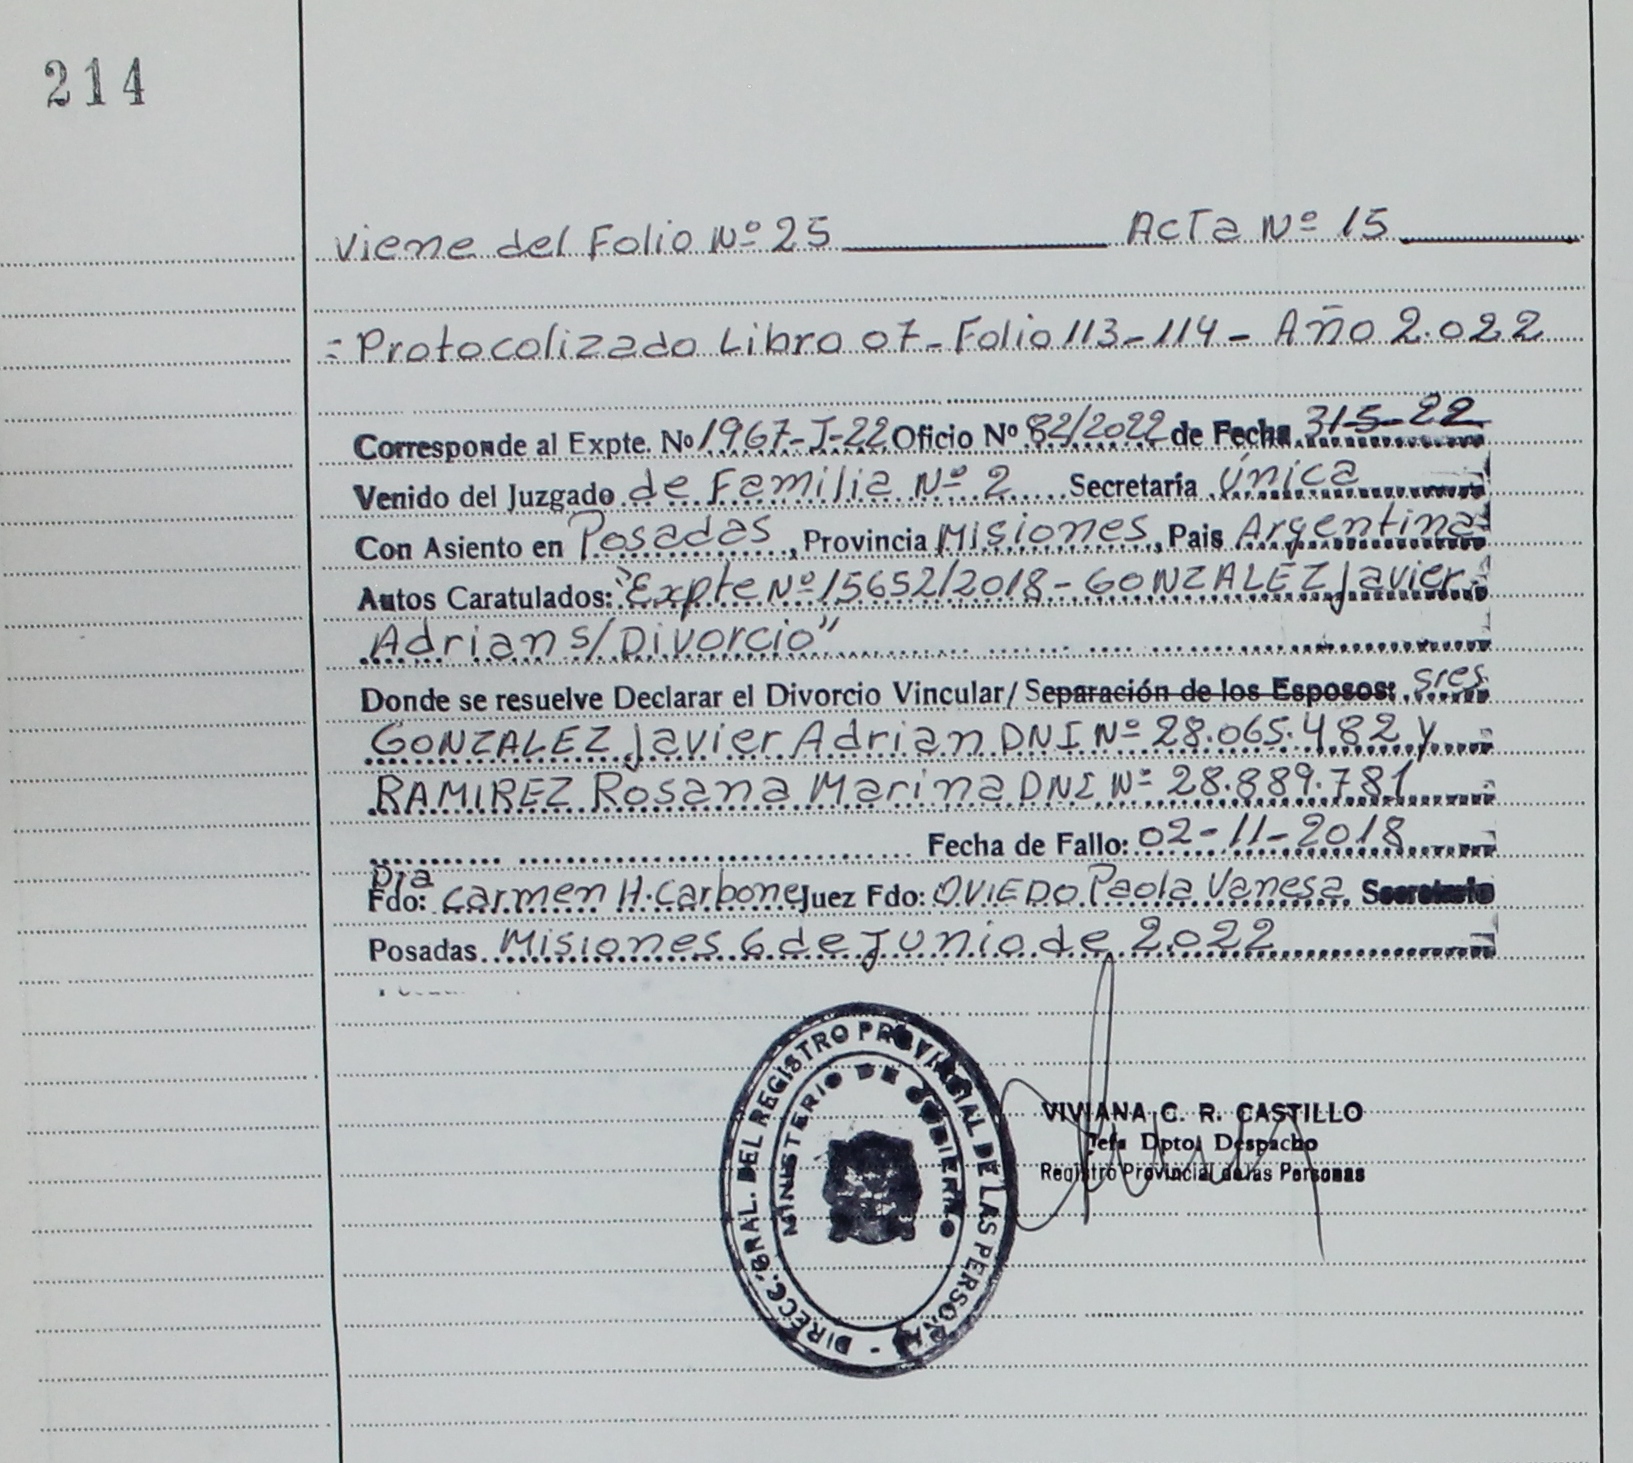 214
Viene del Folio Nº 25 Acta Nº 15
= Protocolizado Libro 07 - Folio 113-114 - Año 2.022
Corresponde al Expte. Nº 1967-J-22 Oficio Nº 82/2022 de Fecha 31-5-22
Venido del Juzgado de Familia Nº 2 Secretaría Única
Con Asiento en Posadas, Provincia Misiones, Pais Argentina
Autos Caratulados: "Expte Nº 15652/2018 - GONZALEZ Javier
Adrian s/Divorcio"
Donde se resuelve Declarar el Divorcio Vincular/ Separación de los Esposos: sres
GONZALEZ Javier Adrian DNI Nº 28.065.482 y
RAMIREZ Rosana Marina DNI Nº 28.889.781
Fecha de Fallo: 02-11-2018
Dra
Fdo: Carmen H. Carbone Juez Fdo: OVIEDO Paola Vanesa Secretario
Posadas Misiones 6 de Junio de 2.022
DIRECC. GRAL. DEL REGISTRO PROVINCIAL DE LAS PERSONAS -
MINISTERIO DE GOBIERNO
VIVIANA C. R. CASTILLO
Jefa Dpto. Despacho
Registro Provincial de las Personas